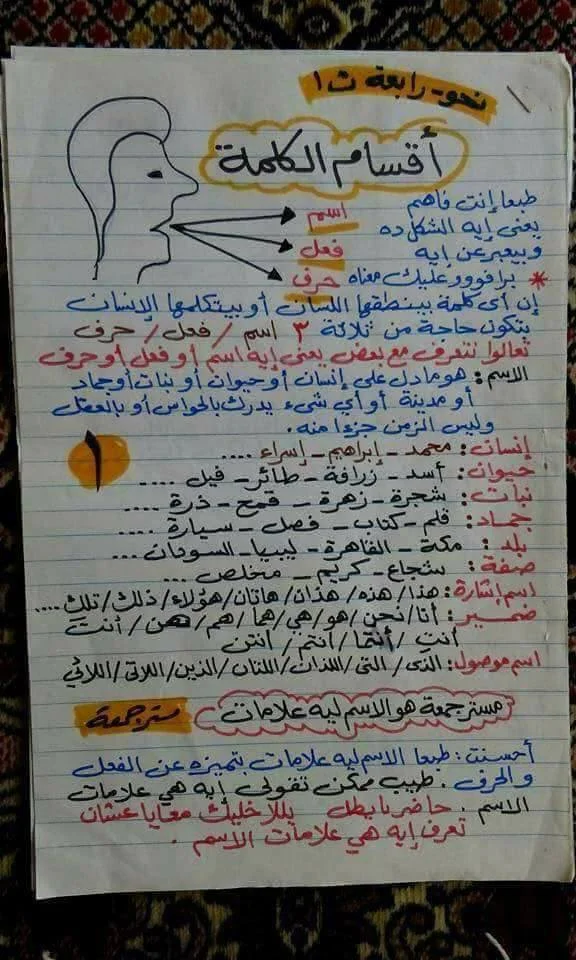 نحو - رابعة ت١
أقسام الكلمة
طبعا إنت فاهم
يعنى إيه الشكل ده
وبيعبر عن إيه
اسم
فعل
حرف
* برافووو عليك معناه
إن أى كلمة بينطقها اللسان أو بيتكلمها الإنسان
بتكون حاجة من ثلاثة ٣ اسم / فعل / حرف
تعالوا نتعرف مع بعض يعنى إيه اسم أو فعل أو حرف
الاسم : هو مادل على إنسان أو حيوان أو نبات أو جماد
أو مدينة أو أي شىء يدرك بالحواس أو بالعقل
وليس الزمن جزءا منه .
١
إنسان : محمد - إبراهيم - إسراء ....
حيوان : أسد - زرافة - طائر - فيل ....
نبات : شجرة - زهرة - قمح - ذرة ....
جماد : قلم - كتاب - فصل - سيارة ....
بلد : مكة - القاهرة - ليبيا - السودان ...
صفة : شجاع - كريم - مخلص ...
اسم إشارة : هذا / هذه / هذان / هاتان / هؤلاء / ذلك / تلك ....
ضمير : أنا / نحن / هو / هي / هما / هم / هن / أنت
أنتِ / أنتما / أنتم / انتن
اسم موصول : الذى / التى / اللذان / اللتان / الذين / اللاتى / اللائي
مستر جمعة هو الاسم ليه علامات
مستر جمعة
أحسنت : طبعا الاسم ليه علامات بتميزه عن الفعل
والحرف . طيب ممكن تقولى إيه هي علامات
الاسم . حاضر يا بطل يللا خليك معايا عشان
تعرف إيه هي علامات الاسم .